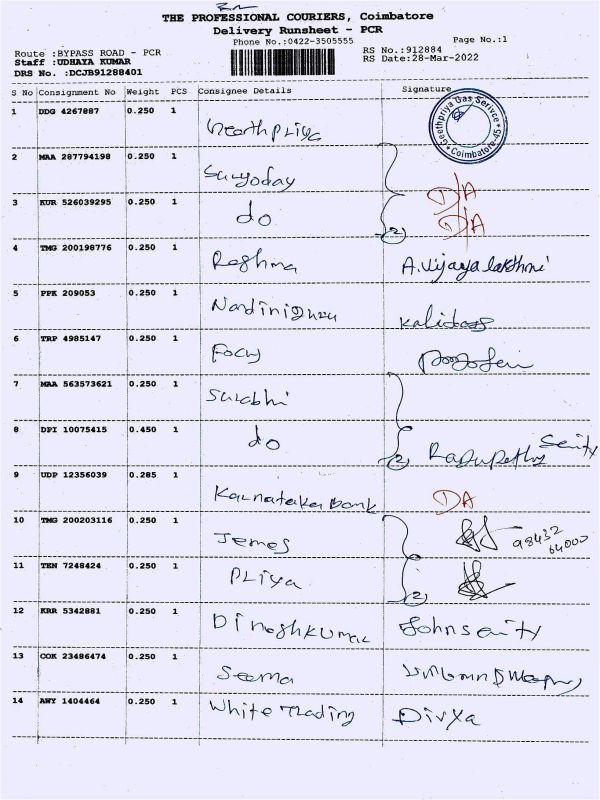 THE PROFESSIONAL COURIERS, Coimbatore
Delivery Runsheet - PCR
Phone No.:0422-3505555
Page No.:1
Route :BYPASS ROAD - PCR
RS No.:912884
Staff :UDHAYA KUMAR
RS Date:28-Mar-2022
DRS No. :DCJB91288401
S No Consignment No Weight PCS Consignee Details Signature
1 DDG 4267887 0.250 1 Geethpriya
Geethpriya Gas Serivce Coimbatore-45
2 MAA 287794198 0.250 1 Suryoday D/A
3 KUR 526039295 0.250 1 do (2) D/A
4 TMG 200198776 0.250 1 Reshma A.vijayalakshmi
5 PPK 209053 0.250 1 Kalidass
6 TRP 4985147 0.250 1 Focus
7 MAA 563573621 0.250 1 Surabhi
8 DPI 10075415 0.450 1 do (2)
9 UDP 12356039 0.285 1 Karnataka Bank DA
10 TMG 200203116 0.250 1 Jemes 98432 64000
11 TEN 7248424 0.250 1 Priya (2)
12 KRR 5342881 0.250 1 Dineshkumar
13 COK 23486474 0.250 1 Seema
14 AWY 1404464 0.250 1 White Trading Divya